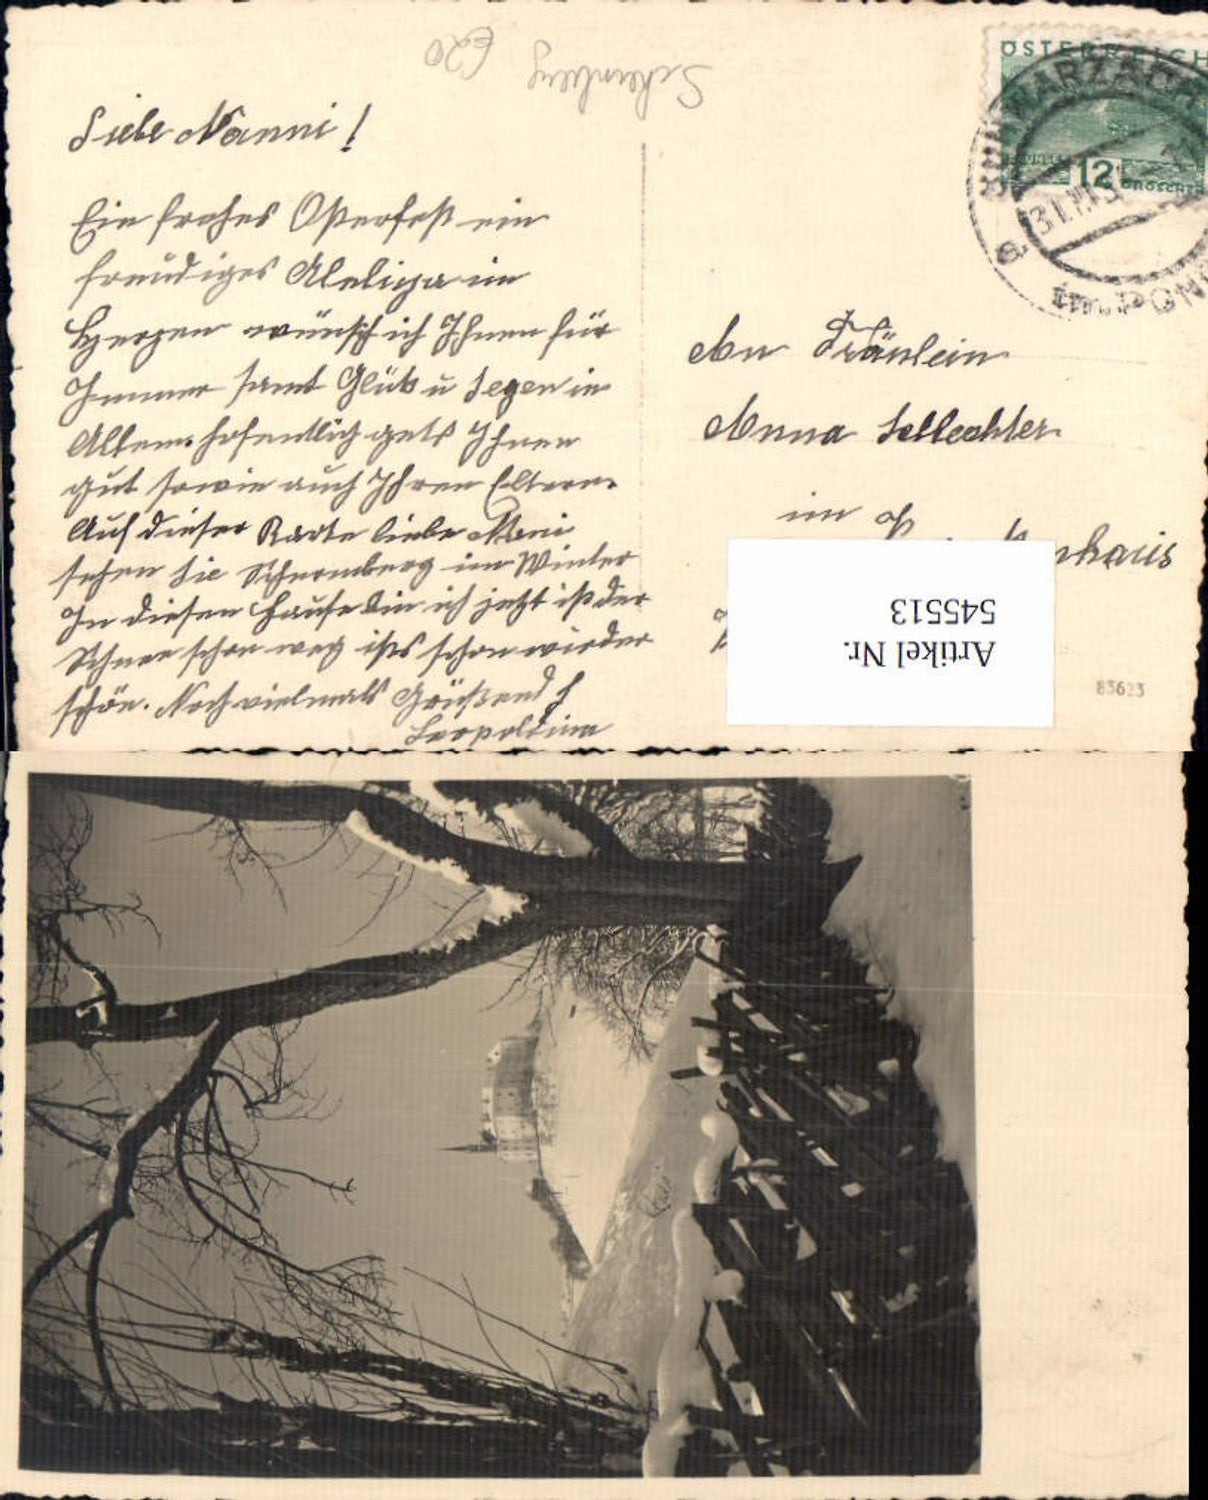 Schernberg
E20
ÖSTERREICH
12 GROSCHEN
SCHWARZACH
im PONG
31.III.3
8
Liebe Nanni!
Ein frohes Osterfest ein
freudiges Aleluja im
Herzen wünsch ich Ihnen für
Immer samt Glück u Segen in
Allem. hofentlich gets Ihnen
gut sowie auch Ihren Eltern.
Auf dieser Karte liebe Nani
sehen Sie Schernberg im Winter
In diesen Hause bin ich jetzt ist der
Schnee schon weg ists schon wieder
schön. Noch vielmals Grüßend
Leopoldina
An Fräulein
Anna Sellechter
im
nhaus
Artikel Nr.
545513
83623